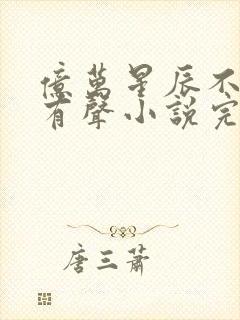 億萬星辰不
有聲小說完
唐三蕭